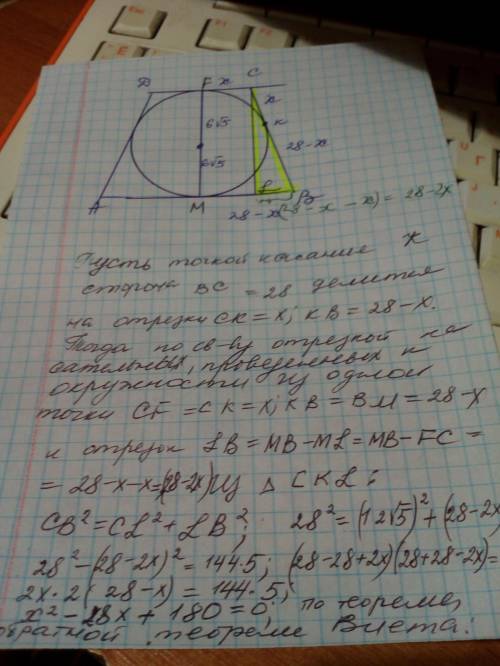 D F x C
x
6√5 K
28-x
6√5
L
A M 28-x B (28-x-x) = 28-2x
Пусть точкой касание K
сторона BC = 28 делится
на отрезки CK = x; KB = 28-x.
Тогда по св-ву отрезкой ка
сательных, проведенных к
окружности из одной
точки CF = CK = x; KB = BM = 28-x
и отрезок LB = MB-ML = MB-FC =
= 28-x-x = (28-2x) Из Δ CKL:
CB² = CL² + LB²; 28² = (12√5)² + (28-2x
28² - (28-2x)² = 144·5; (28-28+2x)(28+28-2x) =
2x·2(28-x) = 144·5;
x² - 28x + 180 = 0; по теореме,
обратной теореме Виета: